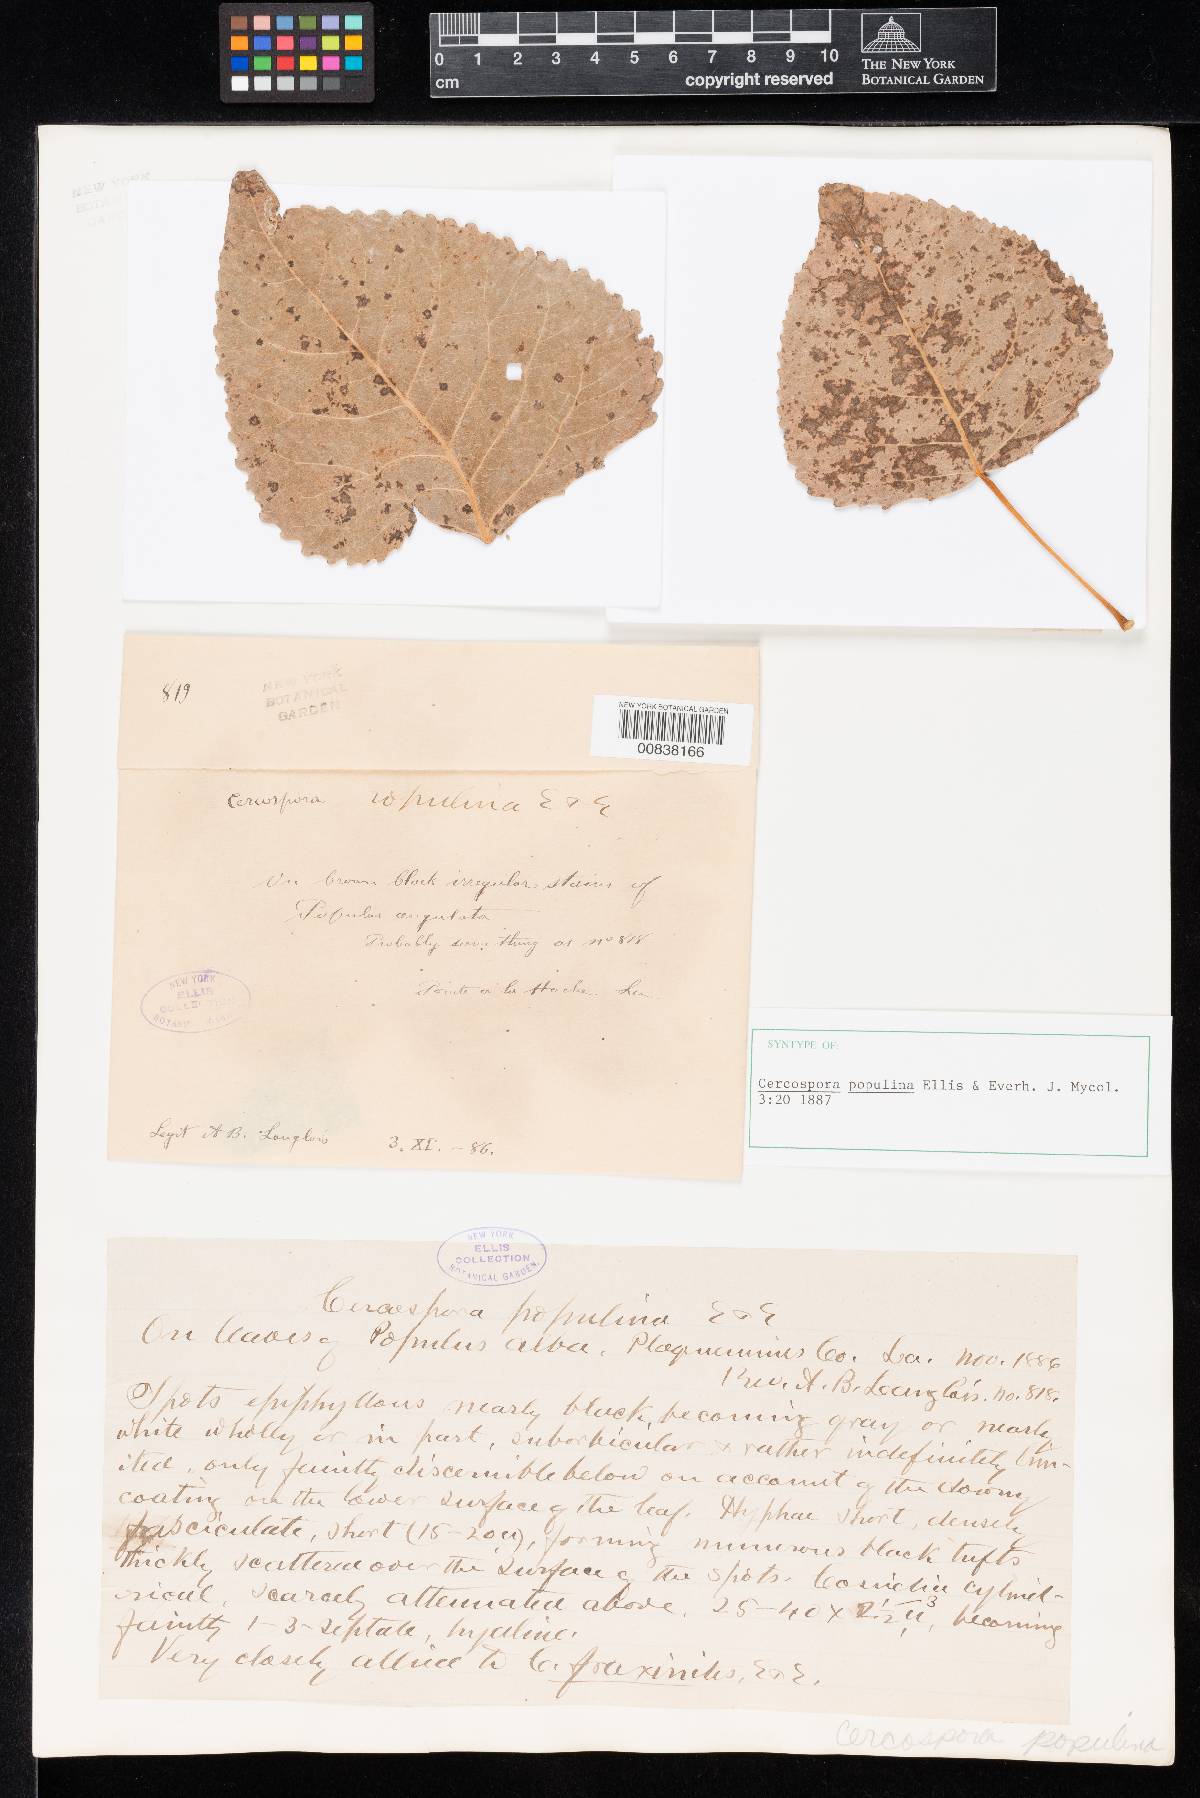 0 1 2 3 4 5 6 7 8 9 10
cm
copyright reserved
THE NEW YORK
BOTANICAL GARDEN
NEW YORK
819
NEW YORK
BOTANICAL
GARDEN
NEW YORK BOTANICAL GARDEN
00838166
Cercospora populina E & E
On brown black irregular stains of
Populus angulata
Probably same thing as no 818
Pointe a la Hache. La.
NEW YORK
ELLIS
COLLECTION
Legit A B. Langlois 3. XI. - 86.
SYNTYPE OF:
Cercospora populina Ellis & Everh. J. Mycol.
3:20 1887
NEW YORK
ELLIS
COLLECTION
BOTANICAL GARDEN.
Cercospora populina E & E
On leaves of Populus alba. Plaquemines Co. La. Nov. 1886
Rev. A. B. Langlois. no. 818.
Spots epiphyllous nearly black, becoming gray or nearly
white wholly or in part, suborbicular & rather indefinitely lim-
ited, only faintly discernible below on account of the downy
coating on the lower surface of the leaf. Hyphae short, densely
fasciculate, short (15-20µ), forming numerous black tufts
thickly scattered over the surface of the spots. Conidia cylind-
rical, scarcely attenuated above, 25-40 x 2½-3 µ, becoming
faintly 1-3-septate, hyaline.
Very closely allied to C. fraxinites, E & E.
Cercospora populina